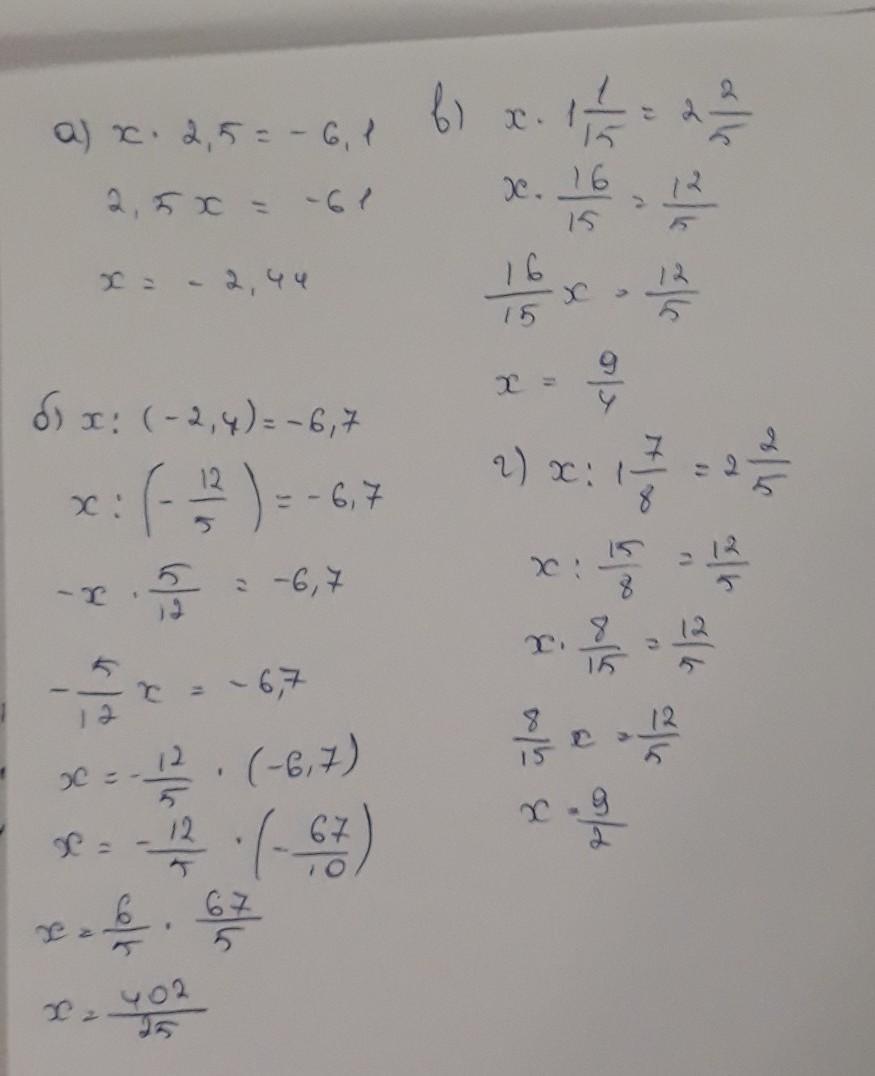 а) x · 2,5 = - 6,1
2,5 x = -61
x = - 2,44
б) x : (-2,4) = -6,7
x : (- 12/5) = - 6,7
-x · 5/12 = -6,7
- 5/12 x = -6,7
x = - 12/5 · (-6,7)
x = - 12/5 · (- 67/10)
x = 6/5 · 67/5
x = 402/25
в) x · 1 1/15 = 2 2/5
x · 16/15 = 12/5
16/15 x = 12/5
x = 9/4
г) x : 1 7/8 = 2 2/5
x : 15/8 = 12/5
x · 8/15 = 12/5
8/15 x = 12/5
x = 9/2